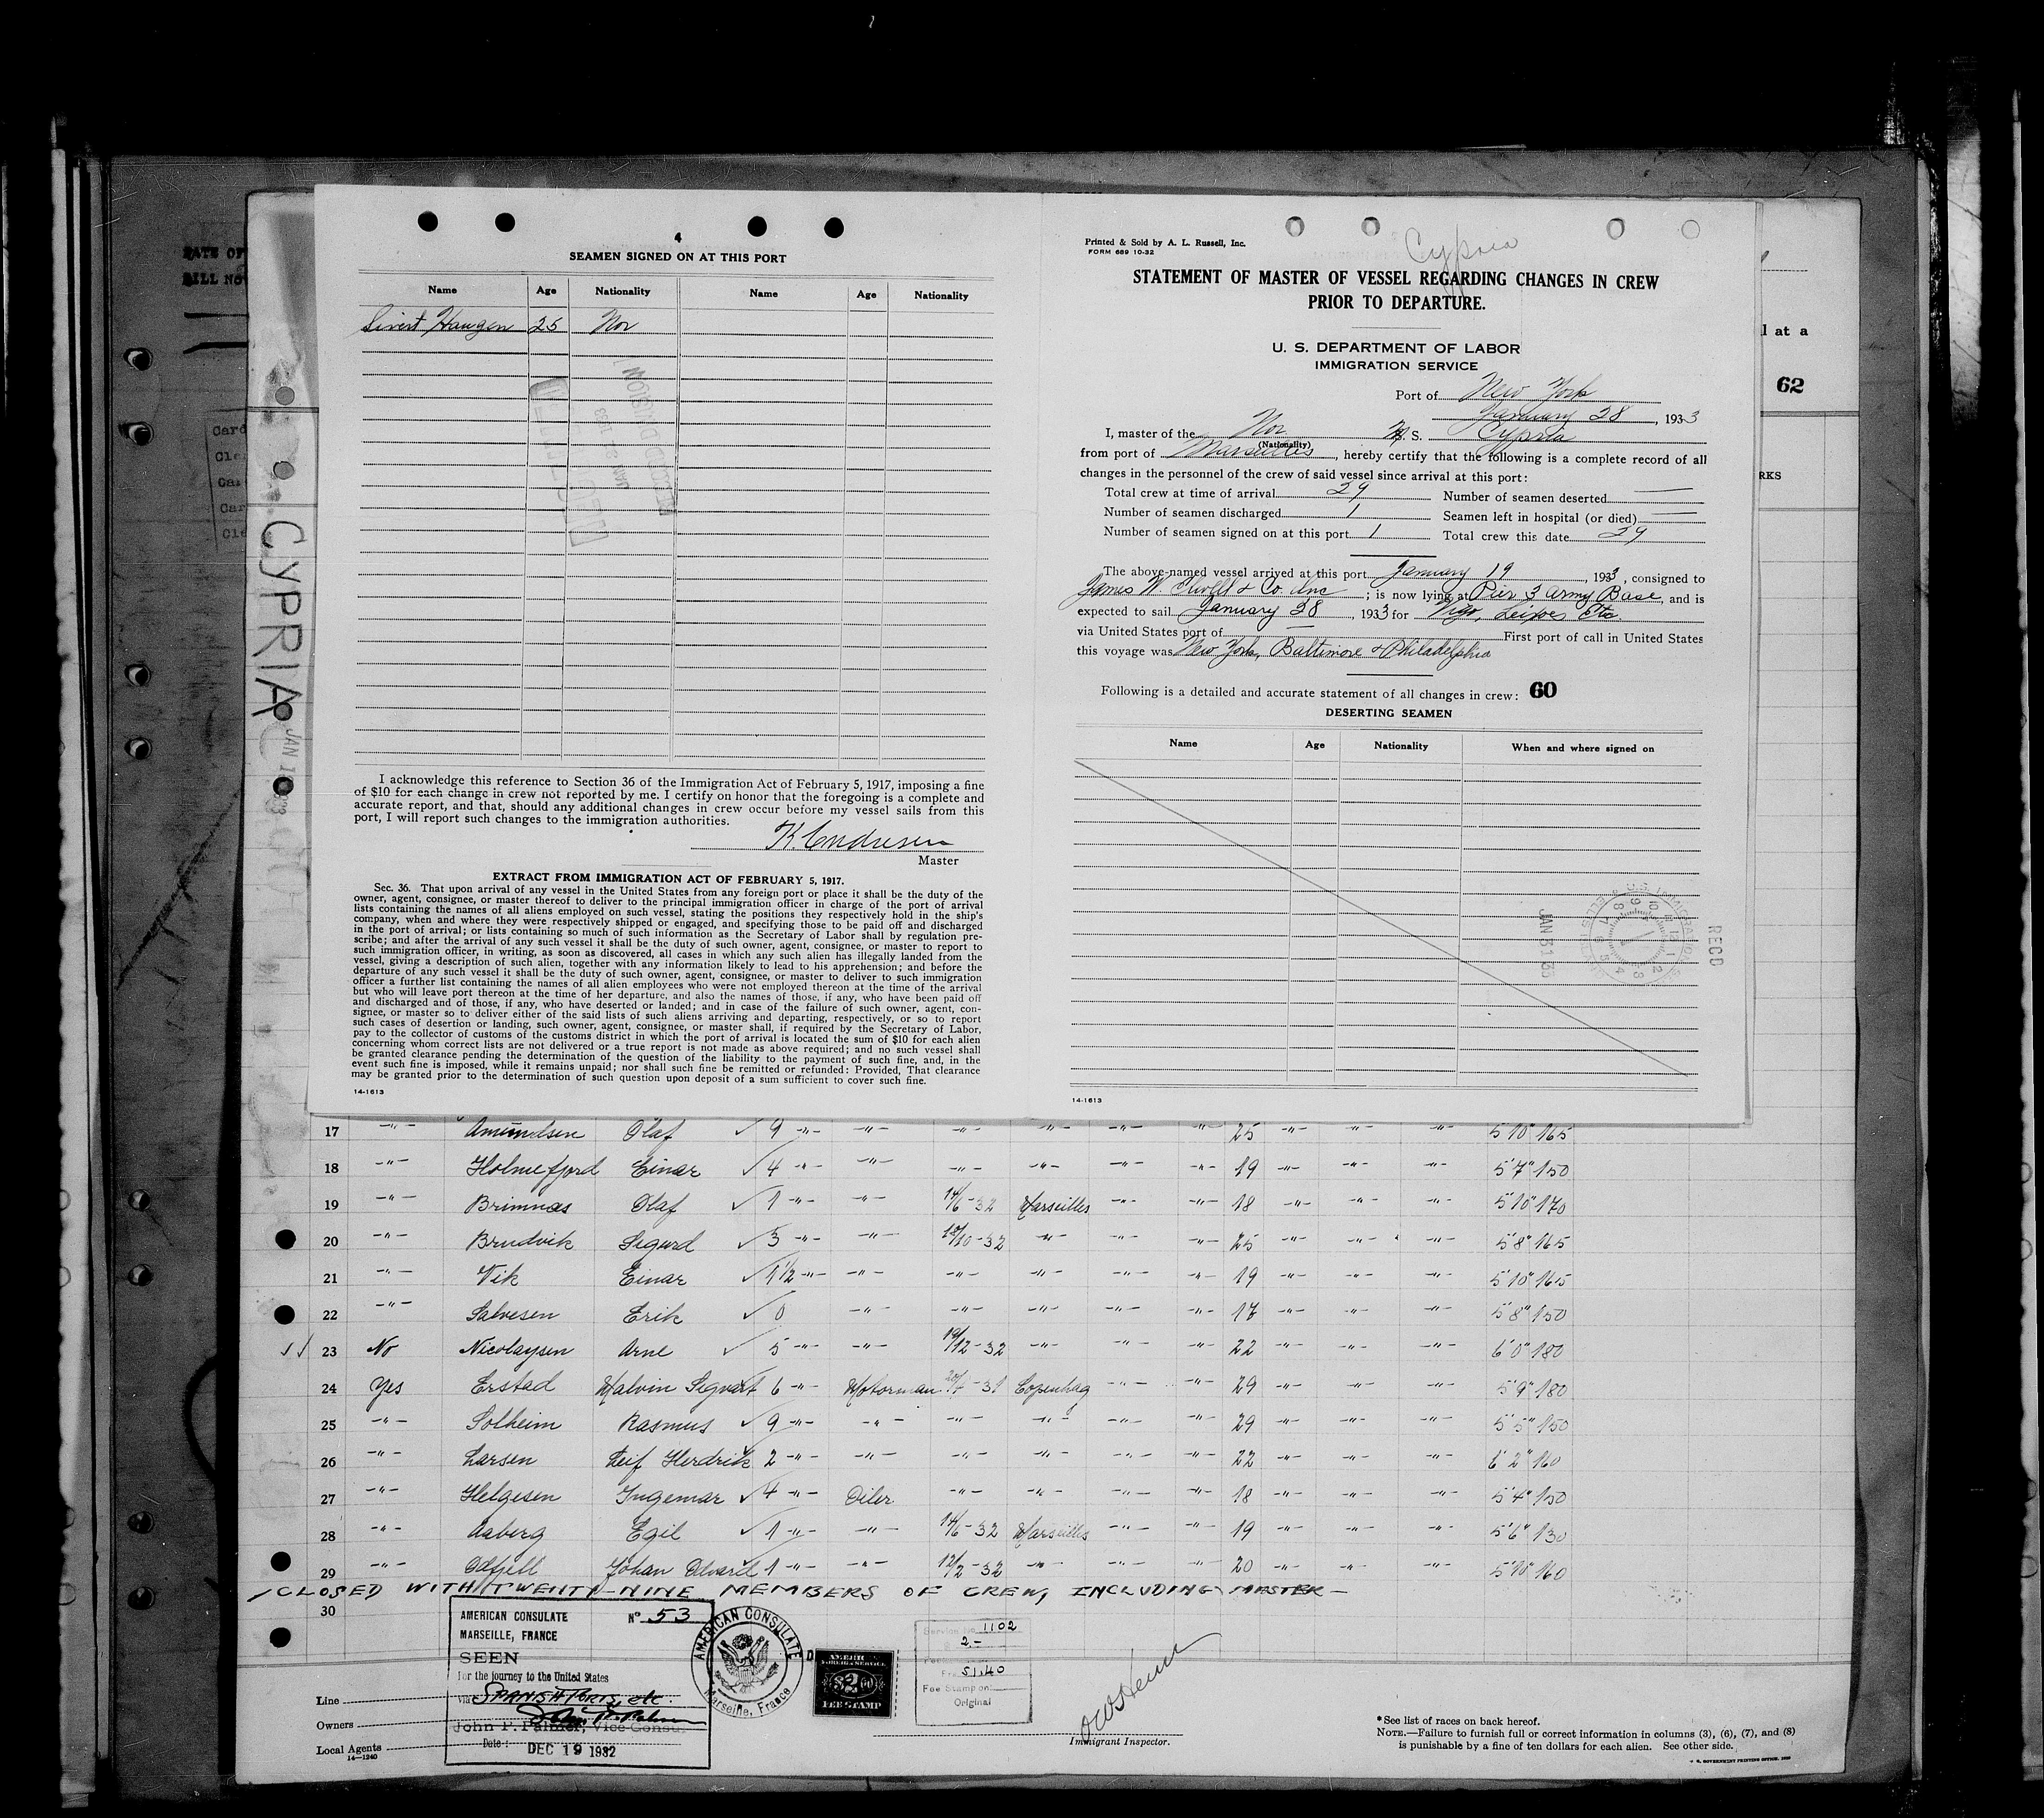 DATE OF
BILL NO
CYPRIA
4
SEAMEN SIGNED ON AT THIS PORT
Name Age Nationality Name Age Nationality
Sivert Haugen 25 Nor
I acknowledge this reference to Section 36 of the Immigration Act of February 5, 1917, imposing a fine
of $10 for each change in crew not reported by me. I certify on honor that the foregoing is a complete and
accurate report, and that, should any additional changes in crew occur before my vessel sails from this
port, I will report such changes to the immigration authorities.
K. Andresen
Master
EXTRACT FROM IMMIGRATION ACT OF FEBRUARY 5, 1917.
Sec. 36. That upon arrival of any vessel in the United States from any foreign port or place it shall be the duty of the
owner, agent, consignee, or master thereof to deliver to the principal immigration officer in charge of the port of arrival
lists containing the names of all aliens employed on such vessel, stating the positions they respectively hold in the ship's
company, when and where they were respectively shipped or engaged, and specifying those to be paid off and discharged
in the port of arrival; or lists containing so much of such information as the Secretary of Labor shall by regulation pre-
scribe; and after the arrival of any such vessel it shall be the duty of such owner, agent, consignee, or master to report to
such immigration officer, in writing, as soon as discovered, all cases in which any such alien has illegally landed from the
vessel, giving a description of such alien, together with any information likely to lead to his apprehension; and before the
departure of any such vessel it shall be the duty of such owner, agent, consignee, or master to deliver to such immigration
officer a further list containing the names of all alien employees who were not employed thereon at the time of the arrival
but who will leave port thereon at the time of her departure, and also the names of those, if any, who have been paid off
and discharged and of those, if any, who have deserted or landed; and in case of the failure of such owner, agent, con-
signee, or master so to deliver either of the said lists of such aliens arriving and departing, respectively, or so to report
such cases of desertion or landing, such owner, agent, consignee, or master shall, if required by the Secretary of Labor,
pay to the collector of customs of the customs district in which the port of arrival is located the sum of $10 for each alien
concerning whom correct lists are not delivered or a true report is not made as above required; and no such vessel shall
be granted clearance pending the determination of the question of the liability to the payment of such fine, and, in the
event such fine is imposed, while it remains unpaid; nor shall such fine be remitted or refunded: Provided, That clearance
may be granted prior to the determination of such question upon deposit of a sum sufficient to cover such fine.
14-1613
Printed & Sold by A. L. Russell, Inc.
FORM 689 10-32
Cypria
STATEMENT OF MASTER OF VESSEL REGARDING CHANGES IN CREW
PRIOR TO DEPARTURE.
U. S. DEPARTMENT OF LABOR
IMMIGRATION SERVICE
Port of New York
January 28, 1933
I, master of the Nor M. S. Cypria
(Nationality)
from port of Marseilles, hereby certify that the following is a complete record of all
changes in the personnel of the crew of said vessel since arrival at this port:
Total crew at time of arrival 29 Number of seamen deserted —
Number of seamen discharged 1 Seamen left in hospital (or died) —
Number of seamen signed on at this port 1 Total crew this date 29
The above-named vessel arrived at this port January 19, 1933, consigned to
James W. Elwell & Co. Inc; is now lying at Pier 3 Army Base, and is
expected to sail January 28, 1933 for Vigo, Etc.
via United States port of — First port of call in United States
this voyage was New York, Baltimore & Philadelphia
Following is a detailed and accurate statement of all changes in crew: 60
DESERTING SEAMEN
Name Age Nationality When and where signed on
JAN 31 33
RECD
14-1613
l at a
62
RKS
17 -"- Amundsen Olaf ✓ 9 -"- -"- -"- -"- -"- -"- 25 -"- -"- -"- 5'10" 165
18 -"- Holmefjord Einar ✓ 4 -"- -"- -"- -"- -"- -"- 19 -"- -"- -"- 5'7" 150
19 -"- Brimnæs Olaf ✓ 1 -"- -"- 14/6-32 Marseilles -"- -"- 18 -"- -"- -"- 5'10" 170
20 -"- Brudvik Sigurd ✓ 3 -"- -"- 18/10-32 -"- -"- -"- 25 -"- -"- -"- 5'8" 165
21 -"- Vik Einar ✓ 1 1/2 -"- -"- -"- -"- -"- -"- 19 -"- -"- -"- 5'10" 165
22 -"- Salvesen Erik ✓ 0 -"- -"- -"- -"- -"- 17 -"- -"- -"- 5'8" 150
23 No Nicolaysen Arne ✓ 5 -"- -"- 19/12-32 -"- -"- -"- 22 -"- -"- -"- 6'0" 180
24 Yes Erstad Malvin Sigvart 6 -"- Motorman 20/7-31 Copenhag -"- -"- 29 -"- -"- -"- 5'9" 180
25 -"- Solheim Rasmus ✓ 9 -"- -"- -"- -"- -"- -"- 29 -"- -"- -"- 5'5" 150
26 -"- Larsen Leif Herdrik 2 -"- -"- -"- -"- -"- -"- 22 -"- -"- -"- 6'2" 160
27 -"- Helgesen Ingemar ✓ 4 -"- Oiler -"- -"- -"- -"- 18 -"- -"- -"- 5'4" 150
28 -"- Aaberg Egil ✓ 1 -"- -"- 14/6-32 Marseilles -"- -"- 19 -"- -"- -"- 5'6" 130
29 -"- Odfjell Johan 1 -"- -"- 12/2-32 -"- -"- -"- 20 -"- -"- -"- 5'10" 160
CLOSED WITH TWENTY-NINE MEMBERS OF CREW, INCLUDING MASTER —
30
AMERICAN CONSULATE No 53
MARSEILLE, FRANCE
SEEN
For the journey to the United States
via SPANISH PORTS, etc.
John P. Palmer, Vice Consul
Date: DEC 19 1932
AMERICAN CONSULATE
Marseille, France
AMERICAN
FOREIGN SERVICE
$2.00
FEE STAMP
Service No. 1102
2.-
51.40
Fee Stamp on
Original
Line
Owners
Local Agents
14-1240
Immigrant Inspector.
*See list of races on back hereof.
NOTE.—Failure to furnish full or correct information in columns (3), (6), (7), and (8)
is punishable by a fine of ten dollars for each alien. See other side.
U. S. GOVERNMENT PRINTING OFFICE